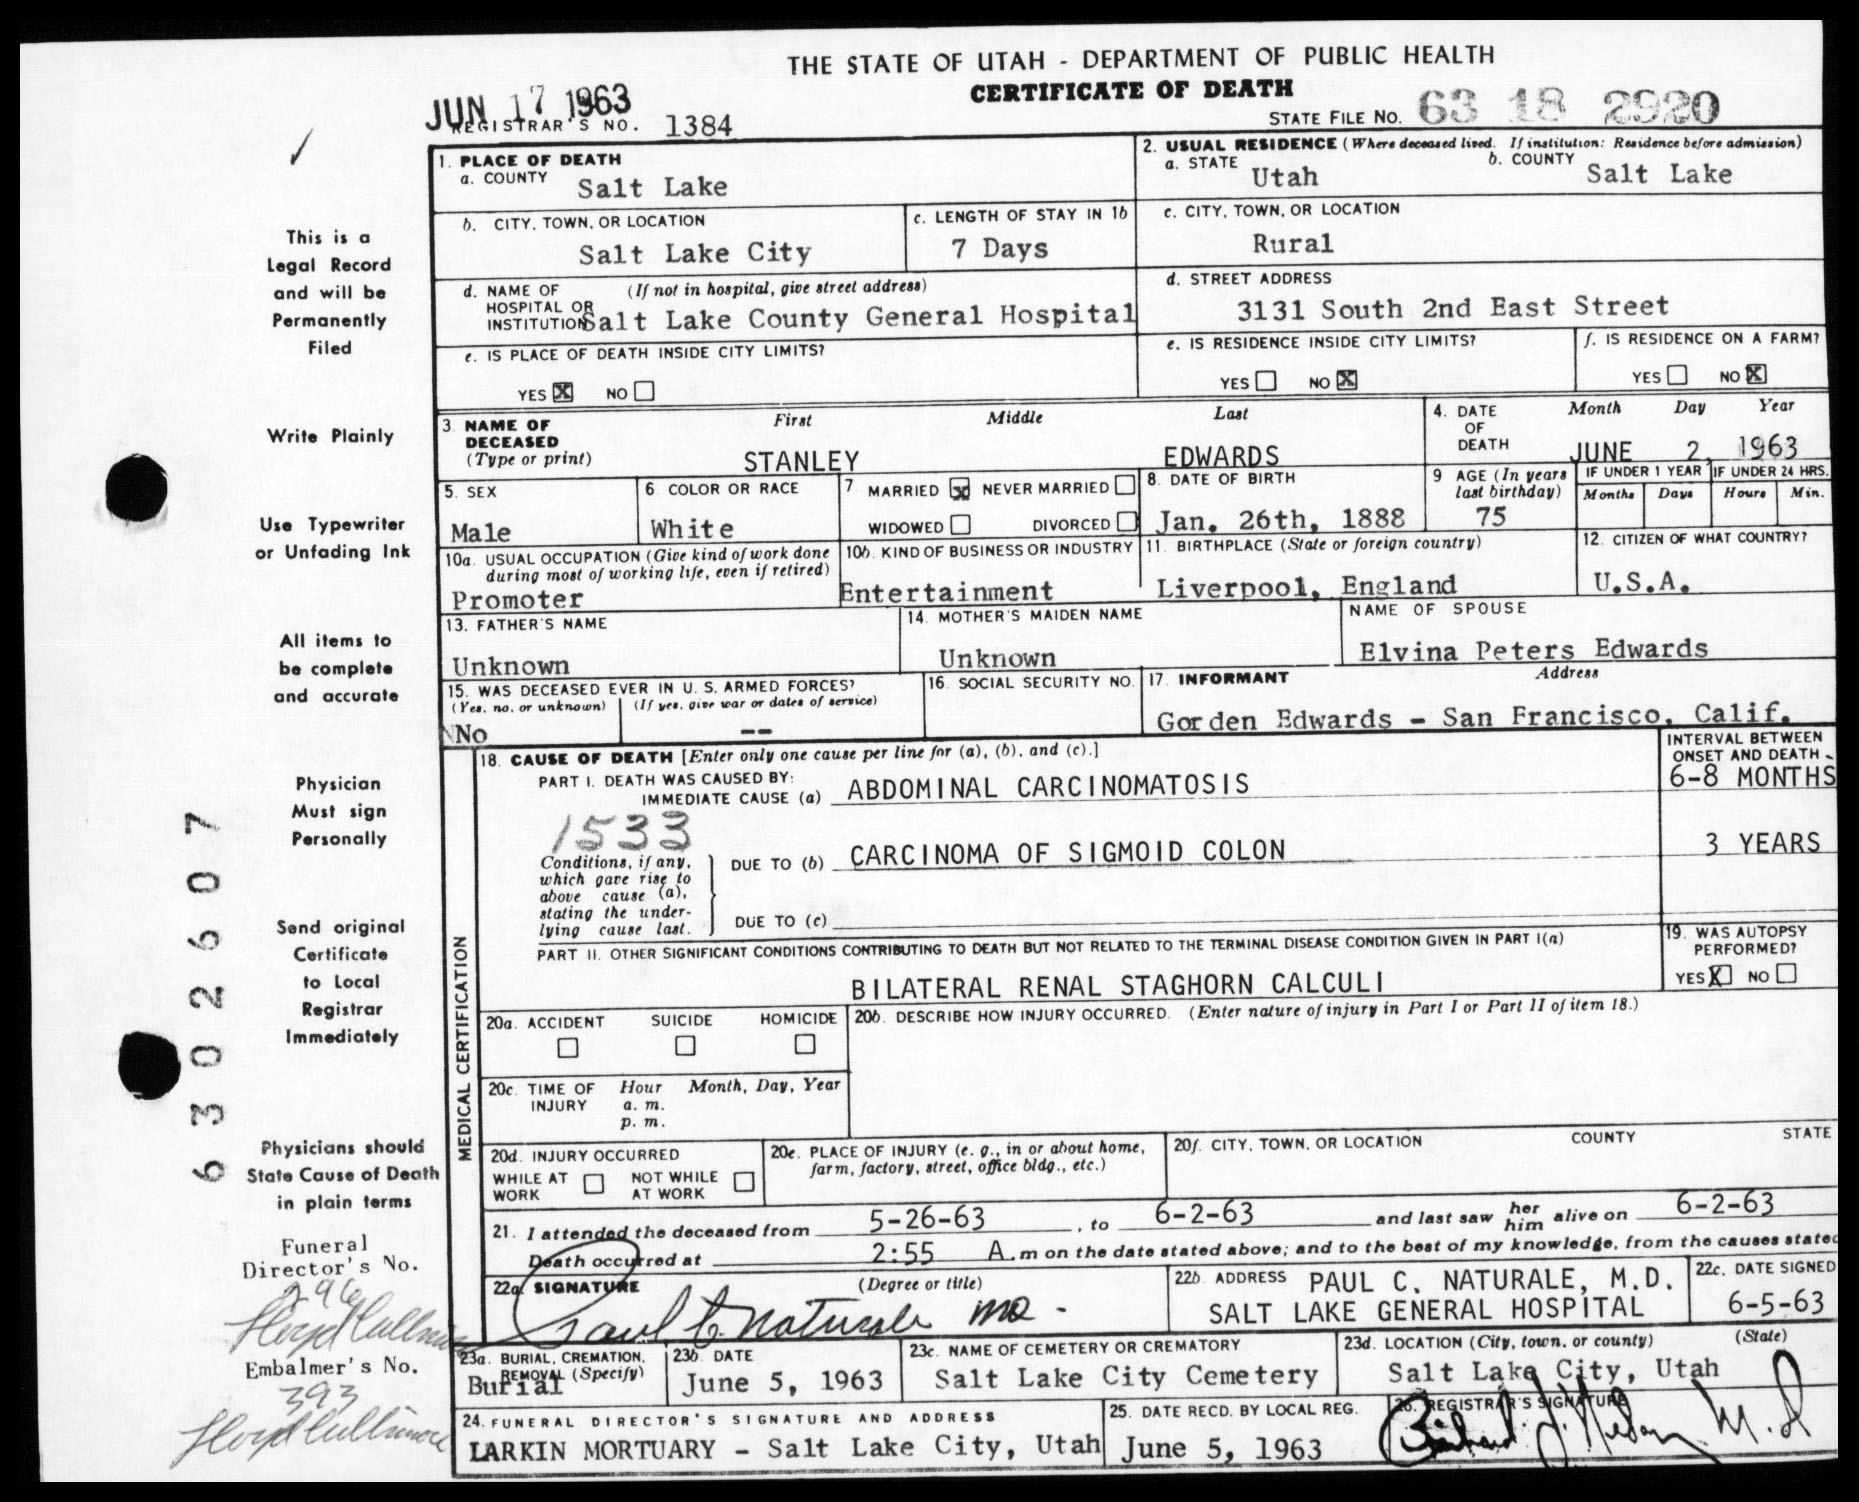 THE STATE OF UTAH - DEPARTMENT OF PUBLIC HEALTH
CERTIFICATE OF DEATH
JUN 17 1963
REGISTRAR'S NO. 1384
STATE FILE NO. 63 18 2920
1. PLACE OF DEATH
a. COUNTY Salt Lake
2. USUAL RESIDENCE (Where deceased lived. If institution: Residence before admission)
a. STATE Utah b. COUNTY Salt Lake
b. CITY, TOWN, OR LOCATION
Salt Lake City
c. LENGTH OF STAY IN 1b
7 Days
c. CITY, TOWN, OR LOCATION
Rural
d. NAME OF HOSPITAL OR INSTITUTION (If not in hospital, give street address)
Salt Lake County General Hospital
d. STREET ADDRESS
3131 South 2nd East Street
e. IS PLACE OF DEATH INSIDE CITY LIMITS?
YES X NO
e. IS RESIDENCE INSIDE CITY LIMITS?
YES NO X
f. IS RESIDENCE ON A FARM?
YES NO X
3. NAME OF DECEASED (Type or print)
First Middle Last
STANLEY EDWARDS
4. DATE OF DEATH
Month Day Year
JUNE 2, 1963
5. SEX
Male
6. COLOR OR RACE
White
7. MARRIED X NEVER MARRIED
WIDOWED DIVORCED
8. DATE OF BIRTH
Jan. 26th, 1888
9 AGE (In years last birthday)
75
IF UNDER 1 YEAR
Months Days
IF UNDER 24 HRS.
Hours Min.
10a. USUAL OCCUPATION (Give kind of work done during most of working life, even if retired)
Promoter
10b. KIND OF BUSINESS OR INDUSTRY
Entertainment
11. BIRTHPLACE (State or foreign country)
Liverpool, England
12. CITIZEN OF WHAT COUNTRY?
U.S.A.
13. FATHER'S NAME
Unknown
14. MOTHER'S MAIDEN NAME
Unknown
NAME OF SPOUSE
Elvina Peters Edwards
15. WAS DECEASED EVER IN U. S. ARMED FORCES?
(Yes, no, or unknown) (If yes, give war or dates of service)
No --
16. SOCIAL SECURITY NO.
17. INFORMANT Address
Gorden Edwards - San Francisco, Calif.
MEDICAL CERTIFICATION
18. CAUSE OF DEATH [Enter only one cause per line for (a), (b), and (c).]
INTERVAL BETWEEN ONSET AND DEATH
PART I. DEATH WAS CAUSED BY:
IMMEDIATE CAUSE (a) ABDOMINAL CARCINOMATOSIS 6-8 MONTHS
1533
Conditions, if any, which gave rise to above cause (a), stating the underlying cause last.
DUE TO (b) CARCINOMA OF SIGMOID COLON 3 YEARS
DUE TO (c)
PART II. OTHER SIGNIFICANT CONDITIONS CONTRIBUTING TO DEATH BUT NOT RELATED TO THE TERMINAL DISEASE CONDITION GIVEN IN PART I(a)
BILATERAL RENAL STAGHORN CALCULI
19. WAS AUTOPSY PERFORMED?
YES X NO
20a. ACCIDENT SUICIDE HOMICIDE
20b. DESCRIBE HOW INJURY OCCURRED. (Enter nature of injury in Part I or Part II of item 18.)
20c. TIME OF INJURY Hour Month, Day, Year
a. m.
p. m.
20d. INJURY OCCURRED
WHILE AT WORK NOT WHILE AT WORK
20e. PLACE OF INJURY (e. g., in or about home, farm, factory, street, office bldg., etc.)
20f. CITY, TOWN, OR LOCATION COUNTY STATE
21. I attended the deceased from 5-26-63, to 6-2-63 and last saw her him alive on 6-2-63
Death occurred at 2:55 A.m on the date stated above; and to the best of my knowledge, from the causes stated
22a. SIGNATURE (Degree or title)
Paul C. Naturale MD
22b. ADDRESS PAUL C. NATURALE, M.D.
SALT LAKE GENERAL HOSPITAL
22c. DATE SIGNED
6-5-63
23a. BURIAL, CREMATION, REMOVAL (Specify)
Burial
23b. DATE
June 5, 1963
23c. NAME OF CEMETERY OR CREMATORY
Salt Lake City Cemetery
23d. LOCATION (City, town, or county) (State)
Salt Lake City, Utah
24. FUNERAL DIRECTOR'S SIGNATURE AND ADDRESS
LARKIN MORTUARY - Salt Lake City, Utah
25. DATE RECD. BY LOCAL REG.
June 5, 1963
26. REGISTRAR'S SIGNATURE
This is a
Legal Record
and will be
Permanently
Filed
Write Plainly
Use Typewriter
or Unfading Ink
All items to
be complete
and accurate
Physician
Must sign
Personally
Send original
Certificate
to Local
Registrar
Immediately
Physicians should
State Cause of Death
in plain terms
Funeral
Director's No.
296
Embalmer's No.
393
6302607